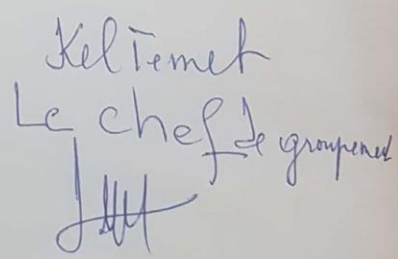 Kel Temet
Le chef de groupement